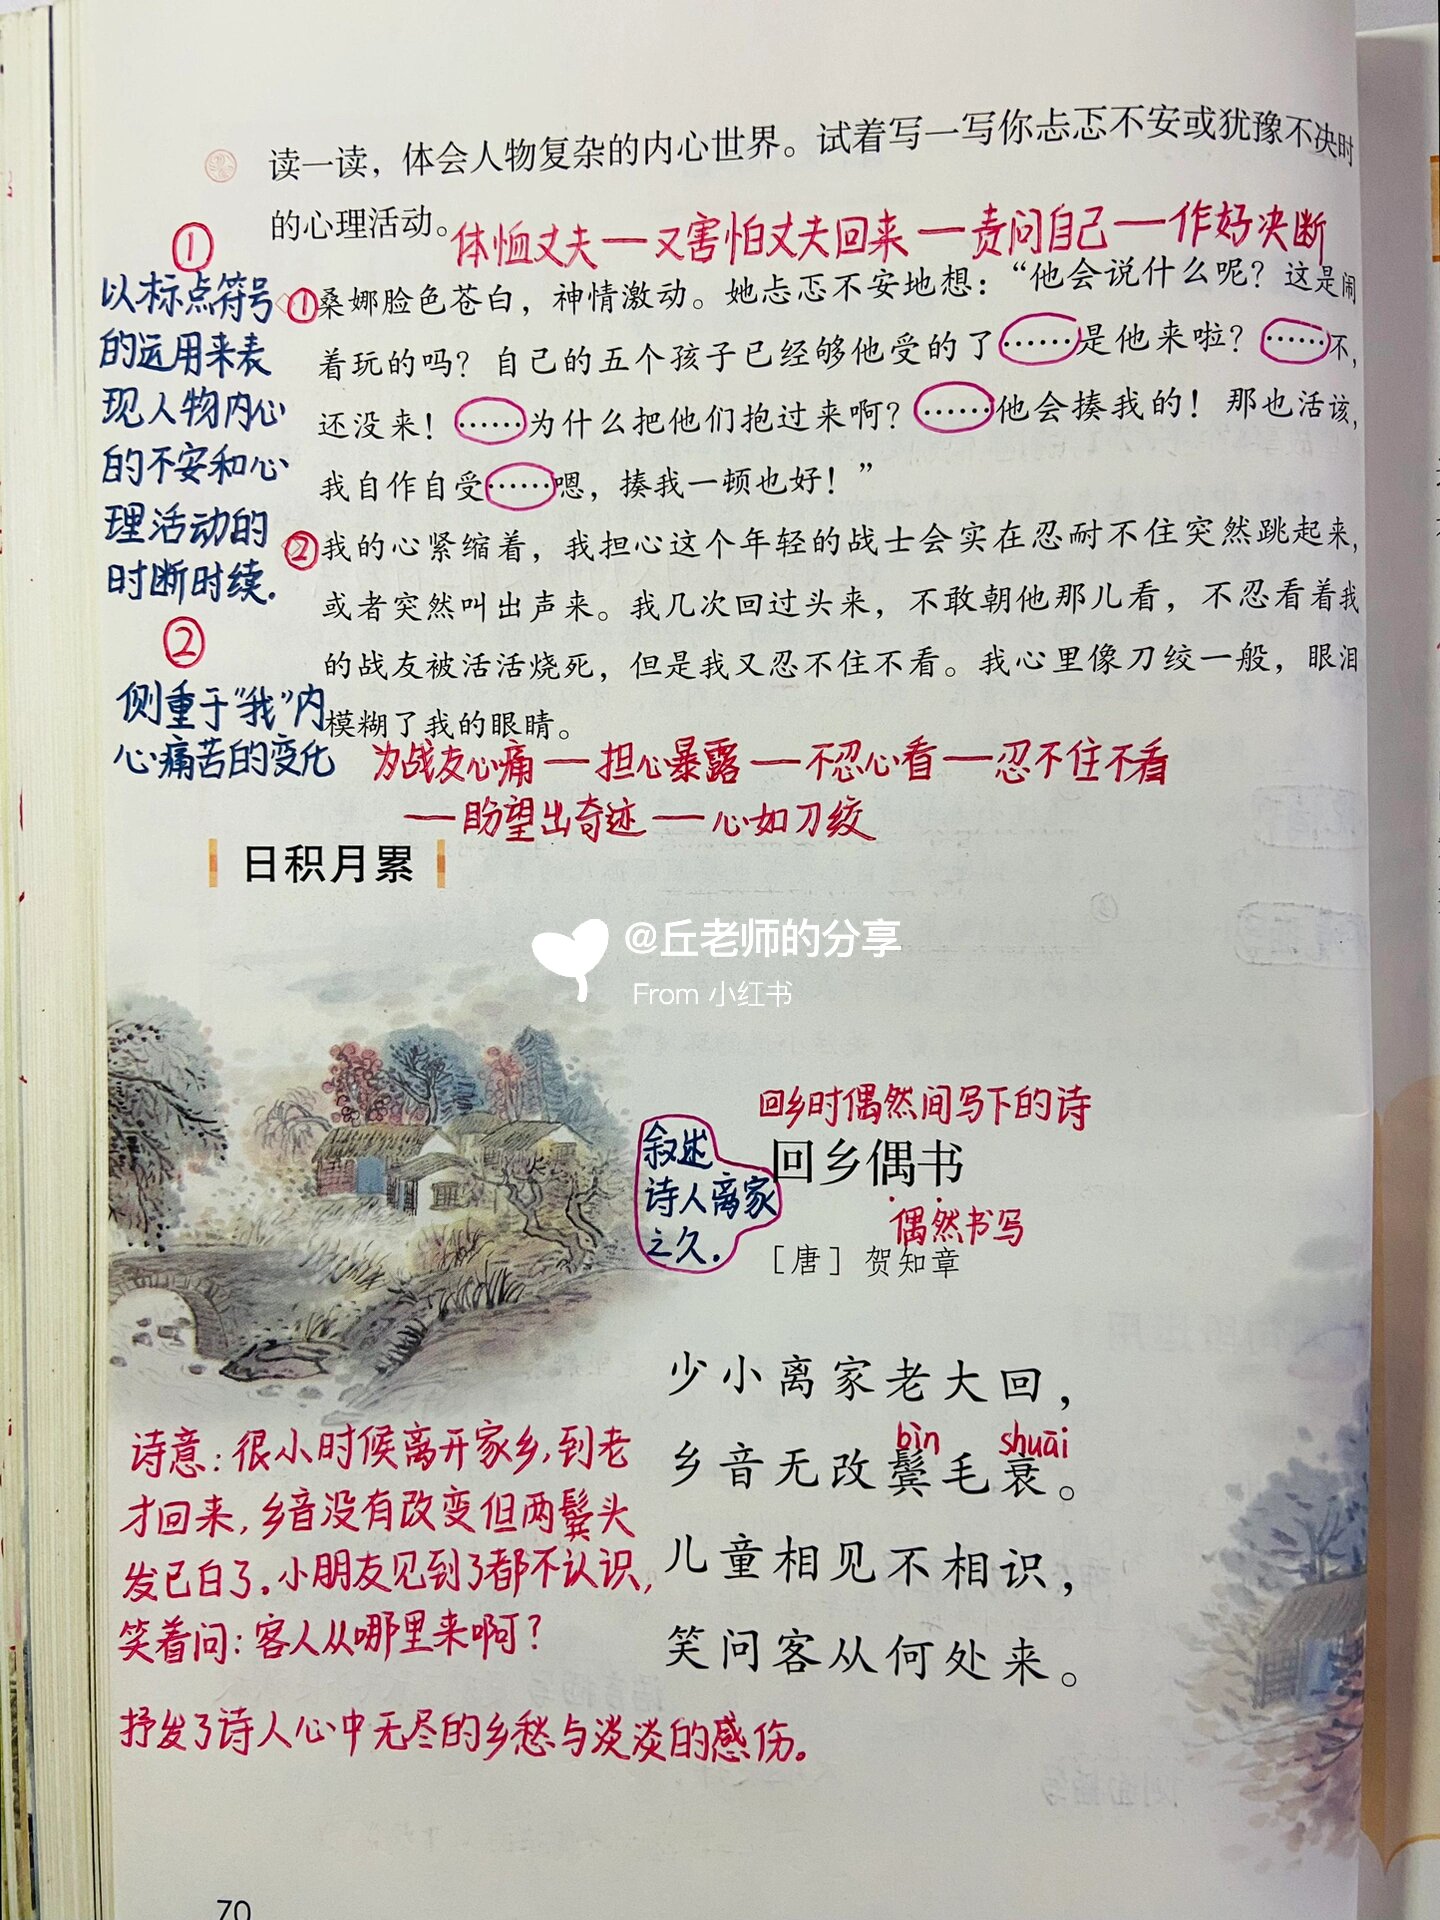 读一读，体会人物复杂的内心世界。试着写一写你忐忑不安或犹豫不决时
的心理活动。
体恤丈夫—又害怕丈夫回来—责问自己—作好决断
①
以标点符号
的运用来表
现人物内心
的不安和心
理活动的
时断时续.
①桑娜脸色苍白，神情激动。她忐忑不安地想：“他会说什么呢？这是闹
着玩的吗？自己的五个孩子已经够他受的了……是他来啦？……不，
还没来！……为什么把他们抱过来啊？……他会揍我的！那也活该，
我自作自受……嗯，揍我一顿也好！”
②
侧重于“我”内
心痛苦的变化
②我的心紧缩着，我担心这个年轻的战士会实在忍耐不住突然跳起来，
或者突然叫出声来。我几次回过头来，不敢朝他那儿看，不忍看着我
的战友被活活烧死，但是我又忍不住不看。我心里像刀绞一般，眼泪
模糊了我的眼睛。
为战友心痛—担心暴露—不忍心看—忍不住不看
—盼望出奇迹—心如刀绞
日积月累
@丘老师的分享
From 小红书
回乡时偶然间写下的诗
叙述
诗人离家
之久.
回乡偶书
偶然书写
［唐］贺知章
少小离家老大回，
bìn shuāi
乡音无改鬓毛衰。
儿童相见不相识，
笑问客从何处来。
诗意：很小时候离开家乡，到老
才回来，乡音没有改变但两鬓头
发已白了。小朋友见到了都不认识，
笑着问：客人从哪里来啊？
抒发了诗人心中无尽的乡愁与淡淡的感伤。
70